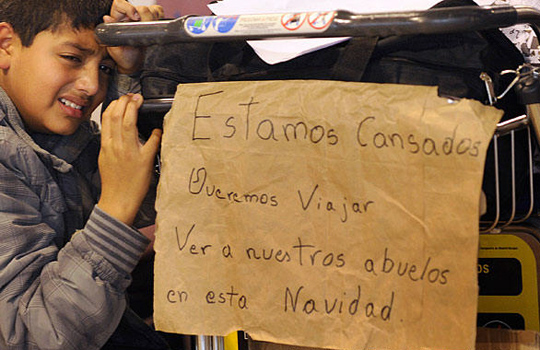 Estamos Cansados
Queremos Viajar
Ver a nuestros abuelos
en esta Navidad.